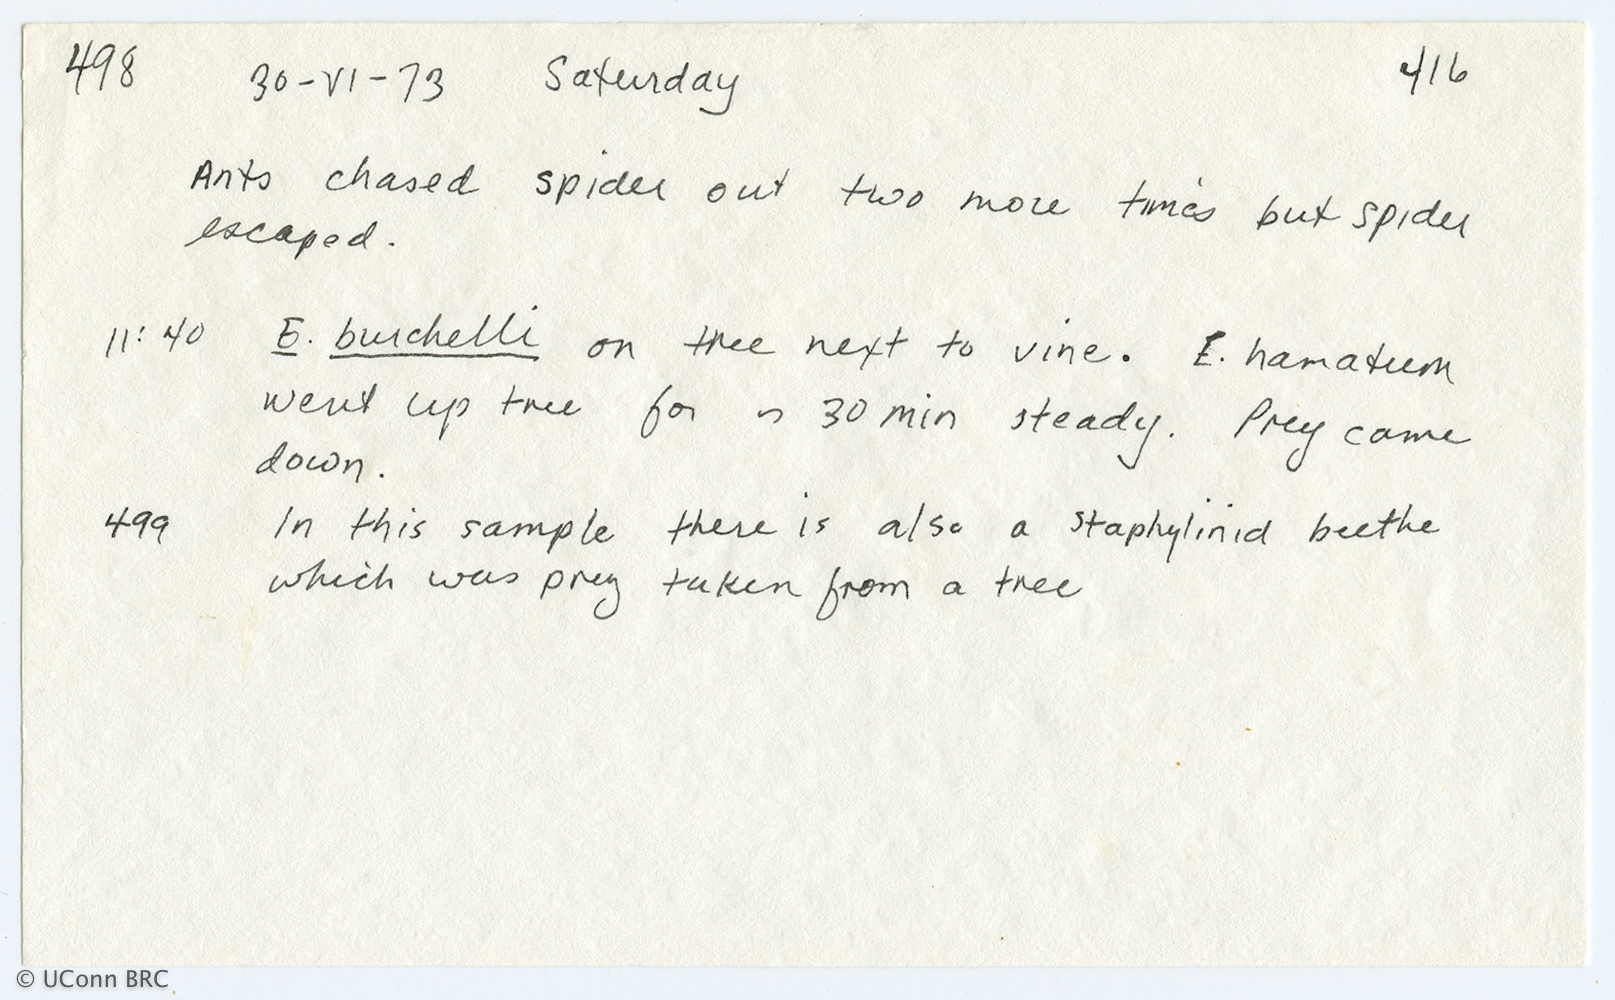 498 30-VI-73 Saturday 416
Ants chased spider out two more times but spider
escaped.
11:40 E. burchelli on tree next to vine. E. hamatum
went up tree for ~ 30 min steady. Prey came
down.
499 In this sample there is also a staphylinid beethe
which was prey taken from a tree
© UConn BRC